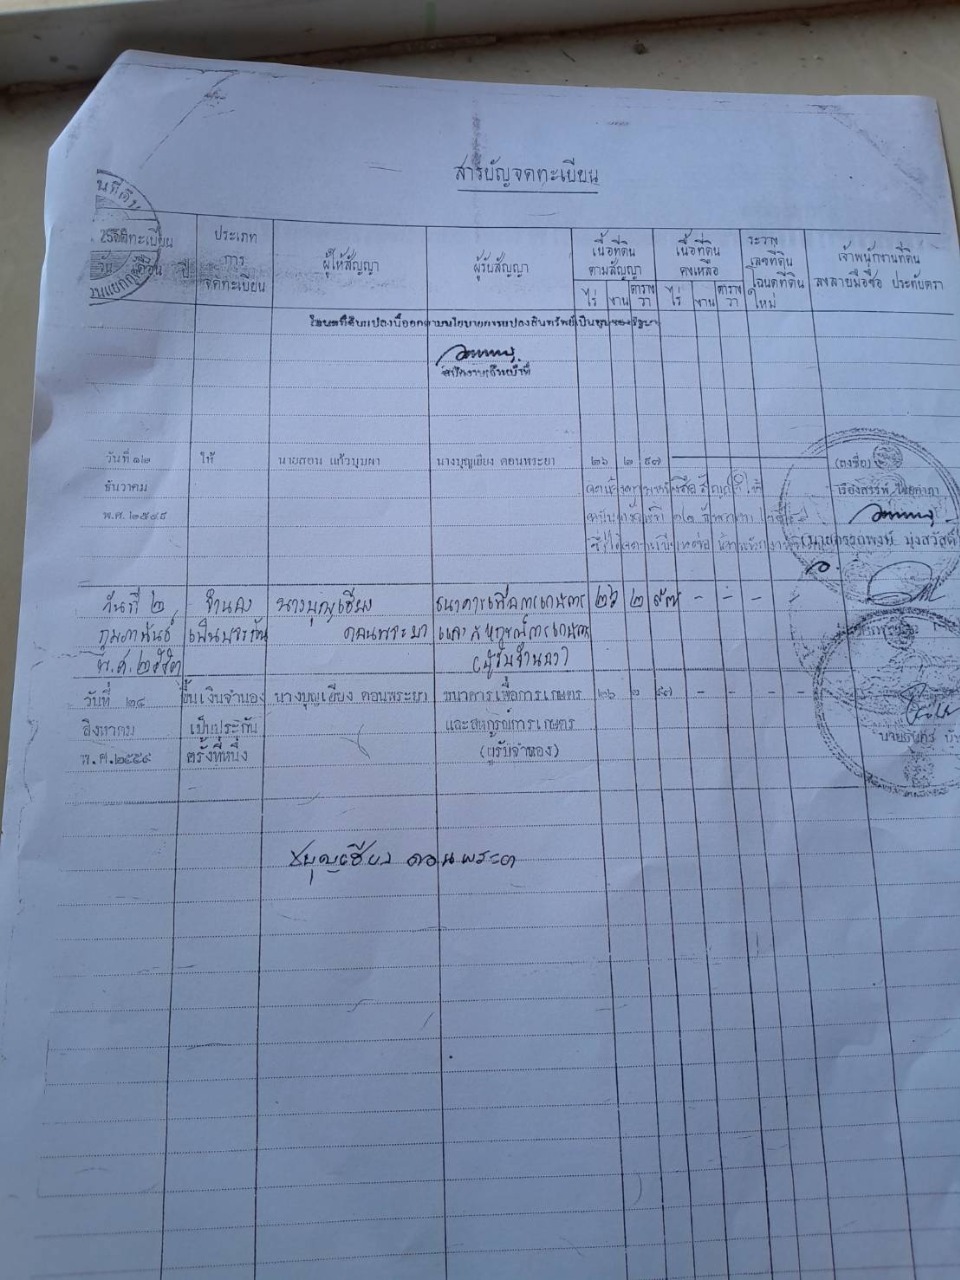 สารบัญจดทะเบียน
จดทะเบียน
วัน เดือน ปี
ประเภท
การ
จดทะเบียน
ผู้ให้สัญญา
ผู้รับสัญญา
เนื้อที่ดิน
ตามสัญญา
ไร่ งาน ตาราง
วา
เนื้อที่ดิน
คงเหลือ
ไร่ งาน ตาราง
วา
ระวาง
เลขที่ดิน
โฉนดที่ดิน
ใหม่
เจ้าพนักงานที่ดิน
ลงลายมือชื่อ ประทับตรา
โฉนดที่ดินแปลงนี้ออกตามนโยบายการแปลงสินทรัพย์เป็นทุนของรัฐบาล
วันที่ ๑๒ ให้ นายสอน แก้วบุบผา นางบุญเฮียง ดอนพระยา ๒๖ ๒ ๙๗ (ลงชื่อ)
ธันวาคม
พ.ศ. ๒๕๔๕
วันที่ ๒ จำนอง นางบุญเฮียง ธนาคารเพื่อการเกษตร ๒๖ ๒ ๙๗ - - - -
กุมภาพันธ์ เป็นประกัน ดอนพระยา และสหกรณ์การเกษตร
พ.ศ. ๒๕๕๓ (ผู้รับจำนอง)
วันที่ ๒๔ ขึ้นเงินจำนอง นางบุญเฮียง ดอนพระยา ธนาคารเพื่อการเกษตร ๒๖ ๒ ๙๗ - - - -
สิงหาคม เป็นประกัน และสหกรณ์การเกษตร
พ.ศ.๒๕๕๙ ครั้งที่หนึ่ง (ผู้รับจำนอง)
บุญเฮียง ดอนพระยา